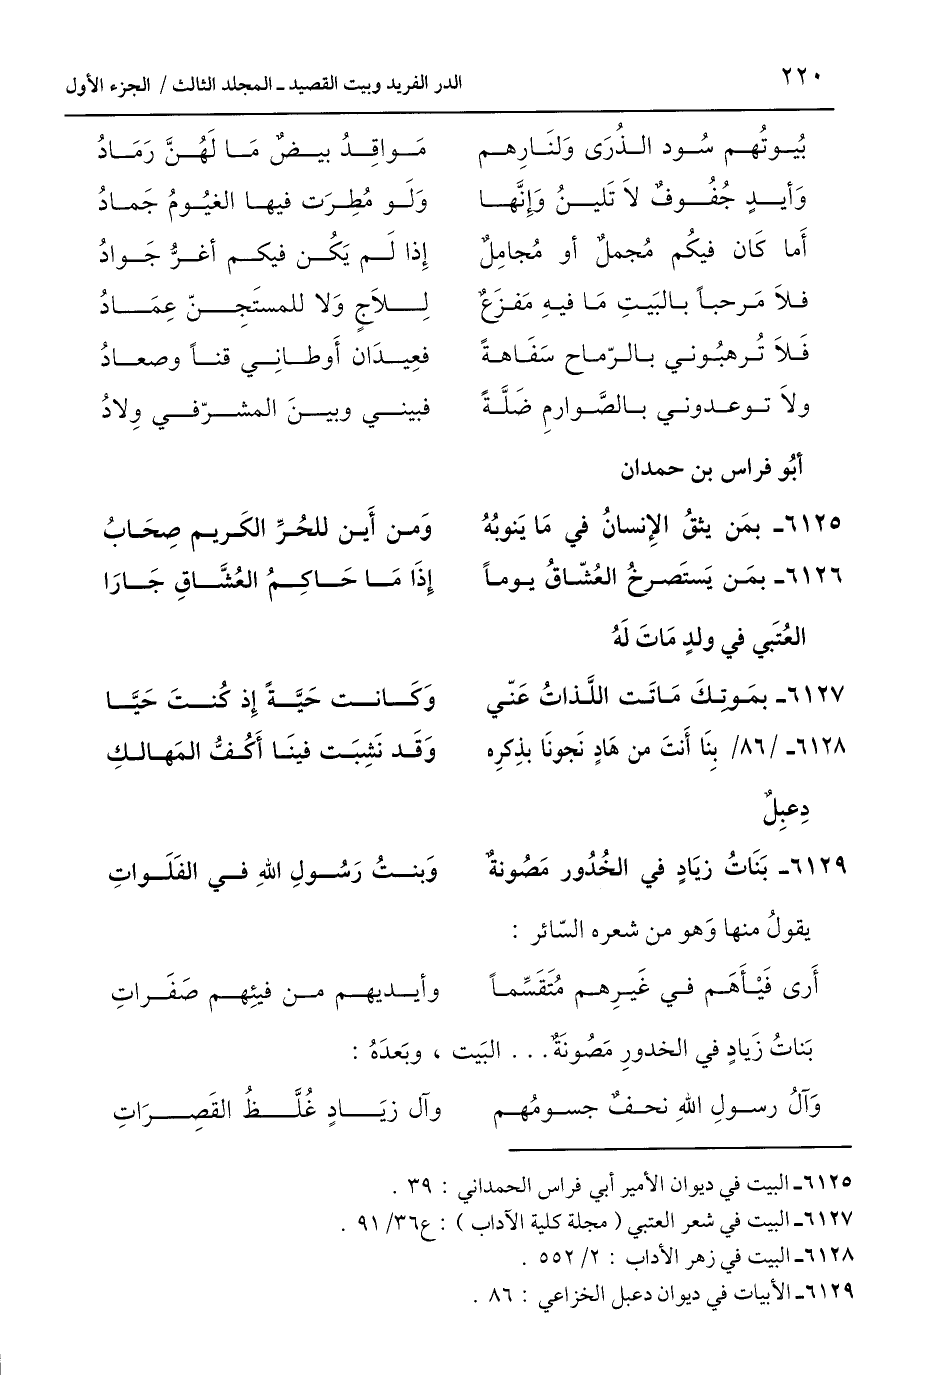 ٢٢٠ الدر الفريد وبيت القصيد ـ المجلد الثالث / الجزء الأول
بُيوتُهـم سُـود الـذُرَى وَلنَـارِهـم مَـواقِـدُ بيـضٌ مَـا لَهُـنَّ رَمَـادُ
وَأيـدٍ جُفُـوفٌ لاَ تَليـنُ وَإِنَّهـا وَلَـو مُطِـرَت فيهـا الغُيُـومُ جَمـادُ
أمَا كَان فيكُم مُجمِلٌ أو مُجامِلٌ إذا لَـم يَكُـن فيكـم أغـرُّ جَـوادُ
فـلاَ مَـرحبـاً بـالبَيـتِ مَـا فيهِ مَفـزَعٌ لِـلاَجٍ وَلا للمستَجِـنّ عِمَـادُ
فَـلاَ تُـرهبُـوني بـالـرّماحِ سَفَـاهـةً فعِيـدَان أَوطَـانـي قنـاً وصعـادُ
ولاَ تـوعـدُونـي بـالصَّـوارِمِ ضَلَّـةً فبينـي وبيـنَ المشـرّفـي وِلادُ
أبُو فراس بن حمدان
٦١٢٥ـ بمَن يثقُ الإِنسانُ في مَا يَنوبُهُ وَمـن أَيـن للحُـرِّ الكَـريـم صِحَـابُ
٦١٢٦ـ بمَـن يَستَصـرخُ العُشّـاقُ يـومـاً إذَا مَـا حَـاكِـمُ العُشَّـاقِ جَـارَا
العُتَبي في ولدٍ مَاتَ لَهُ
٦١٢٧ـ بمَـوتِـكَ مَـاتَـت اللَّـذاتُ عَنّـي وَكَـانـت حَيَّـةً إذ كُنـتَ حَيَّـا
٦١٢٨ـ /٨٦/ بِنَا أنتَ مِن هَادٍ نَجونَا بذِكرِه وَقَـد نَشِبَـت فينَـا أَكُـفُّ المَهـالـكِ
دِعبِلٌ
٦١٢٩ـ بَنَاتُ زيَادٍ في الخُدُور مَصُونةٌ وَبنـتُ رَسُـولِ اللهِ فـي الفَلَـواتِ
يقولُ منها وَهو من شعره السّائر :
أَرى فَيْـأَهَـم فـي غَيـرِهـم مُتَقَسِّمـاً وأيـديهـم مـن فيئِهـم صَفَـراتِ
بَناتُ زَيادٍ في الخدورِ مَصُونَةٌ . . . البَيت ، وبَعدَهُ :
وَآلُ رسـولِ اللهِ نحـفٌ جسـومُهـم وآل زيَـادٍ غُلَّـظُ القَصِـرَاتِ
٦١٢٥ـ البيت في ديوان الأمير أبي فراس الحمداني : ٣٩ .
٦١٢٧ـ البيت في شعر العتبي ( مجلة كلية الآداب ) : ع٣٦/ ٩١ .
٦١٢٨ـ البيت في زهر الأداب : ٢/ ٥٥٢ .
٦١٢٩ـ الأبيات في ديوان دعبل الخزاعي : ٨٦ .